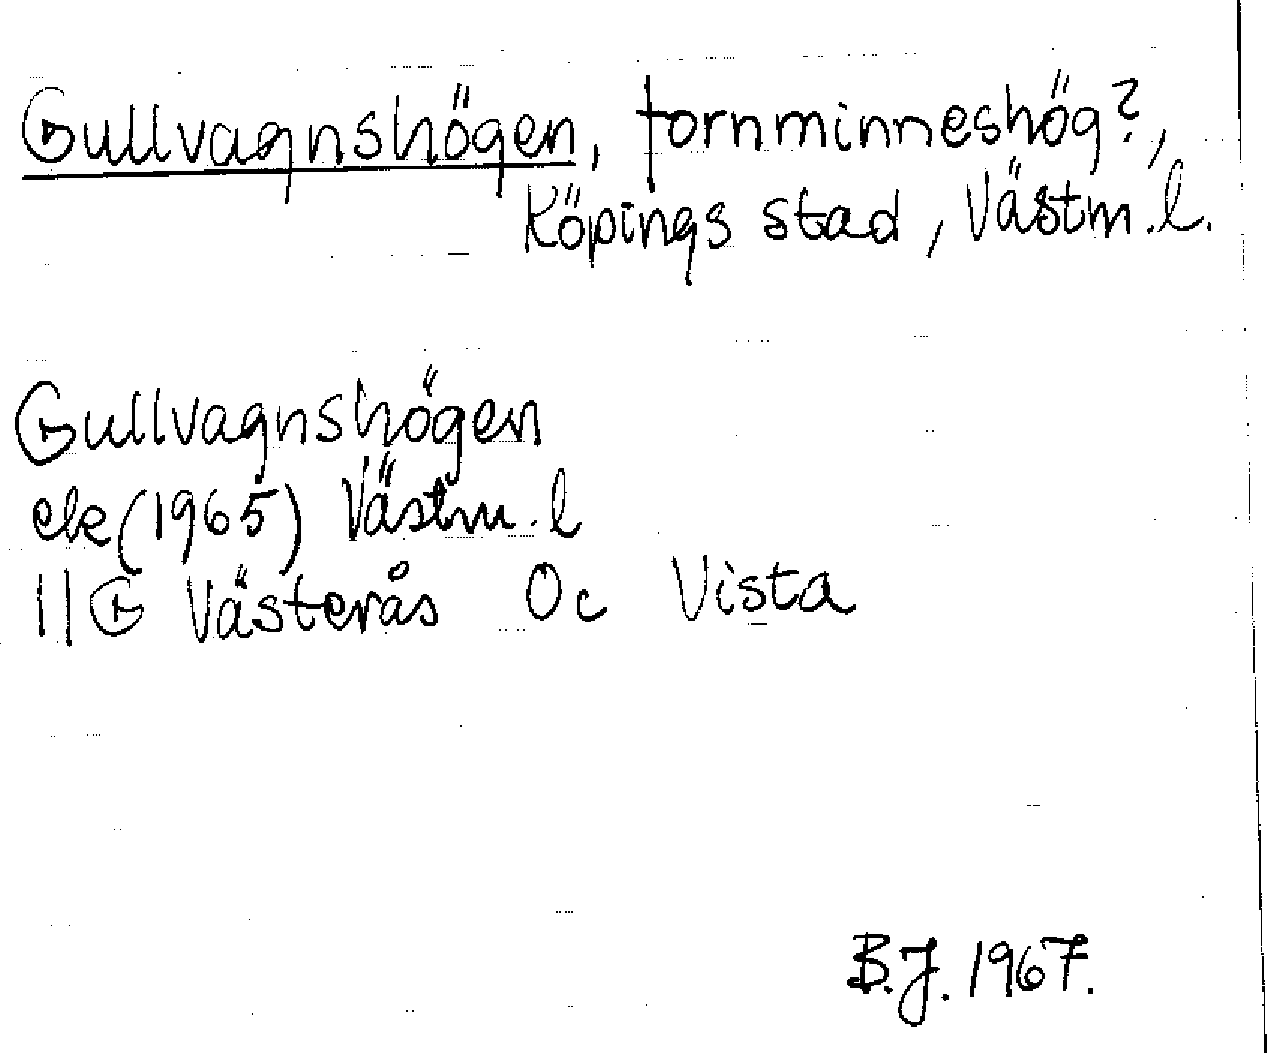 Gullvagnshögen, fornminneshög?,
Köpings stad, Västm.l.
Gullvagnshögen
ek (1965) Västm.l
11G Västerås Oc Vista
B.J. 1967.